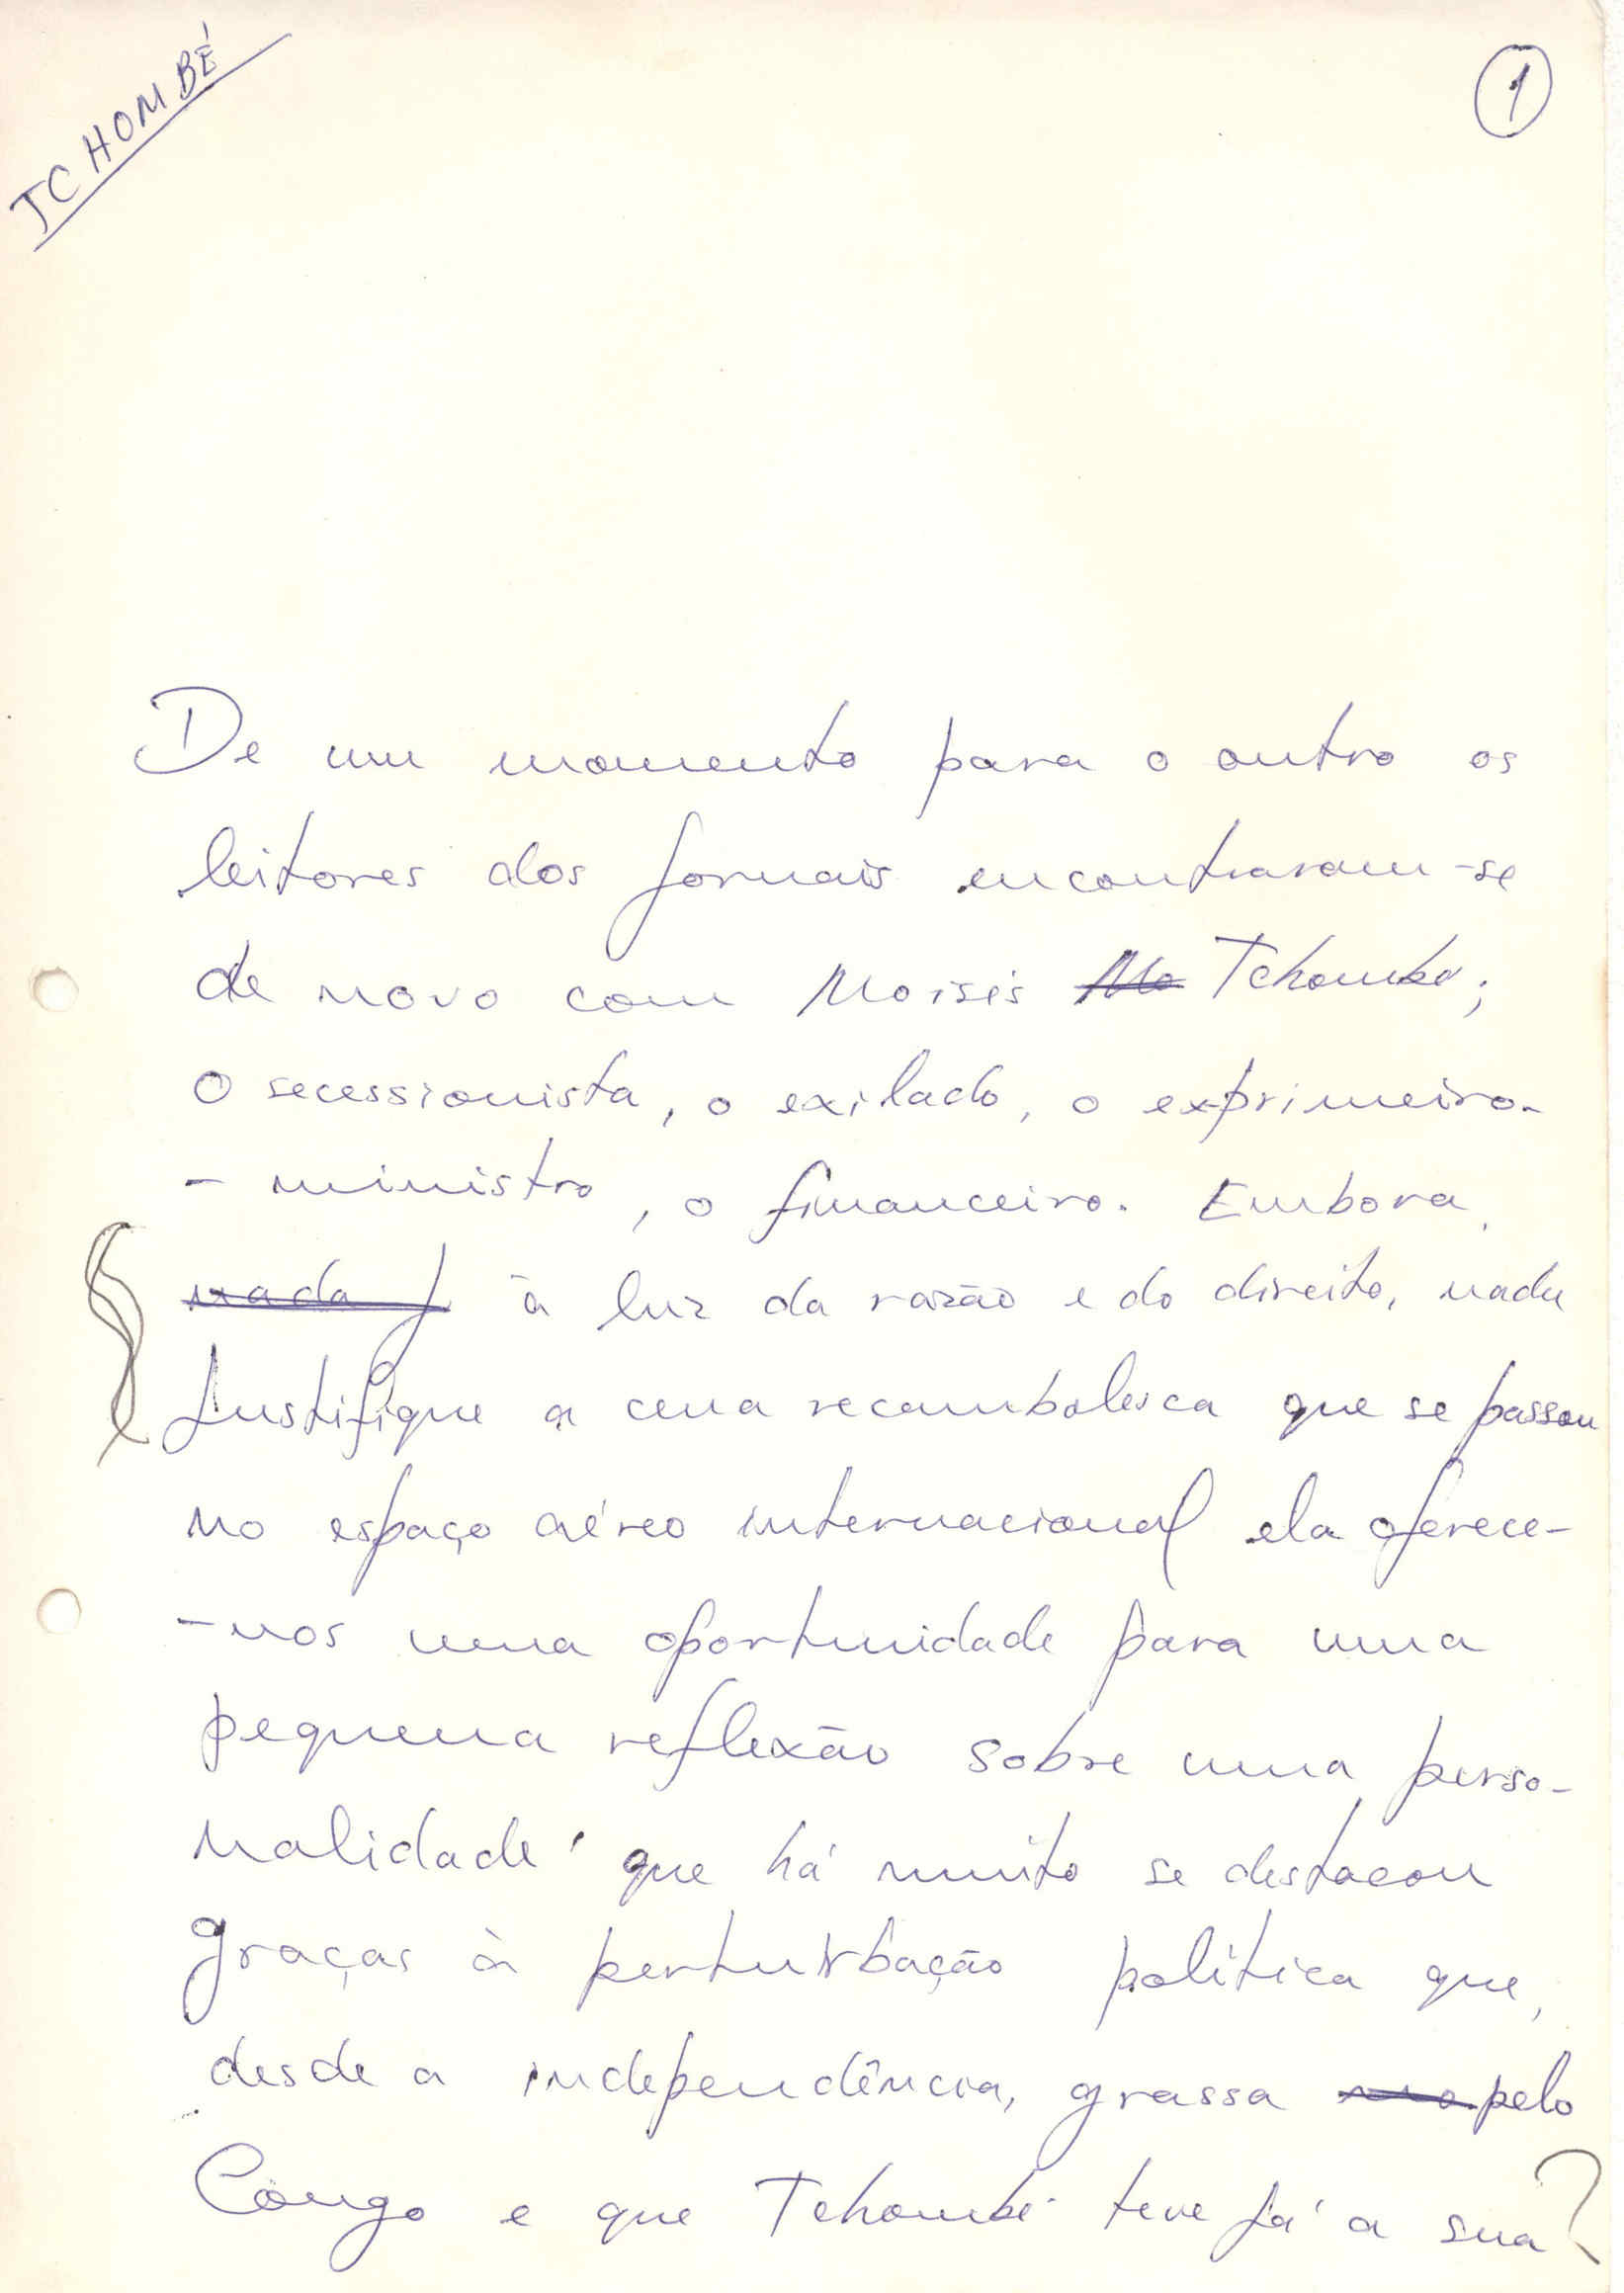 TCHOMBÉ
1
De um momento para o outro os
leitores dos jornais encontraram-se
de novo com Moisés Mo Tchombé;
O secessionista, o exilado, o ex-primeiro-
-ministro, o financeiro. Embora,
nada j à luz da razão e do direito, nada
justifique a cena recambolesca que se passou
no espaço aéreo internacional ela oferece-
-nos uma oportunidade para uma
pequena reflexão sobre uma perso-
nalidade que há muito se destacou
graças à perturbação política que,
desde a independência, grassa no pelo
Congo e que Tchombé teve já a sua?